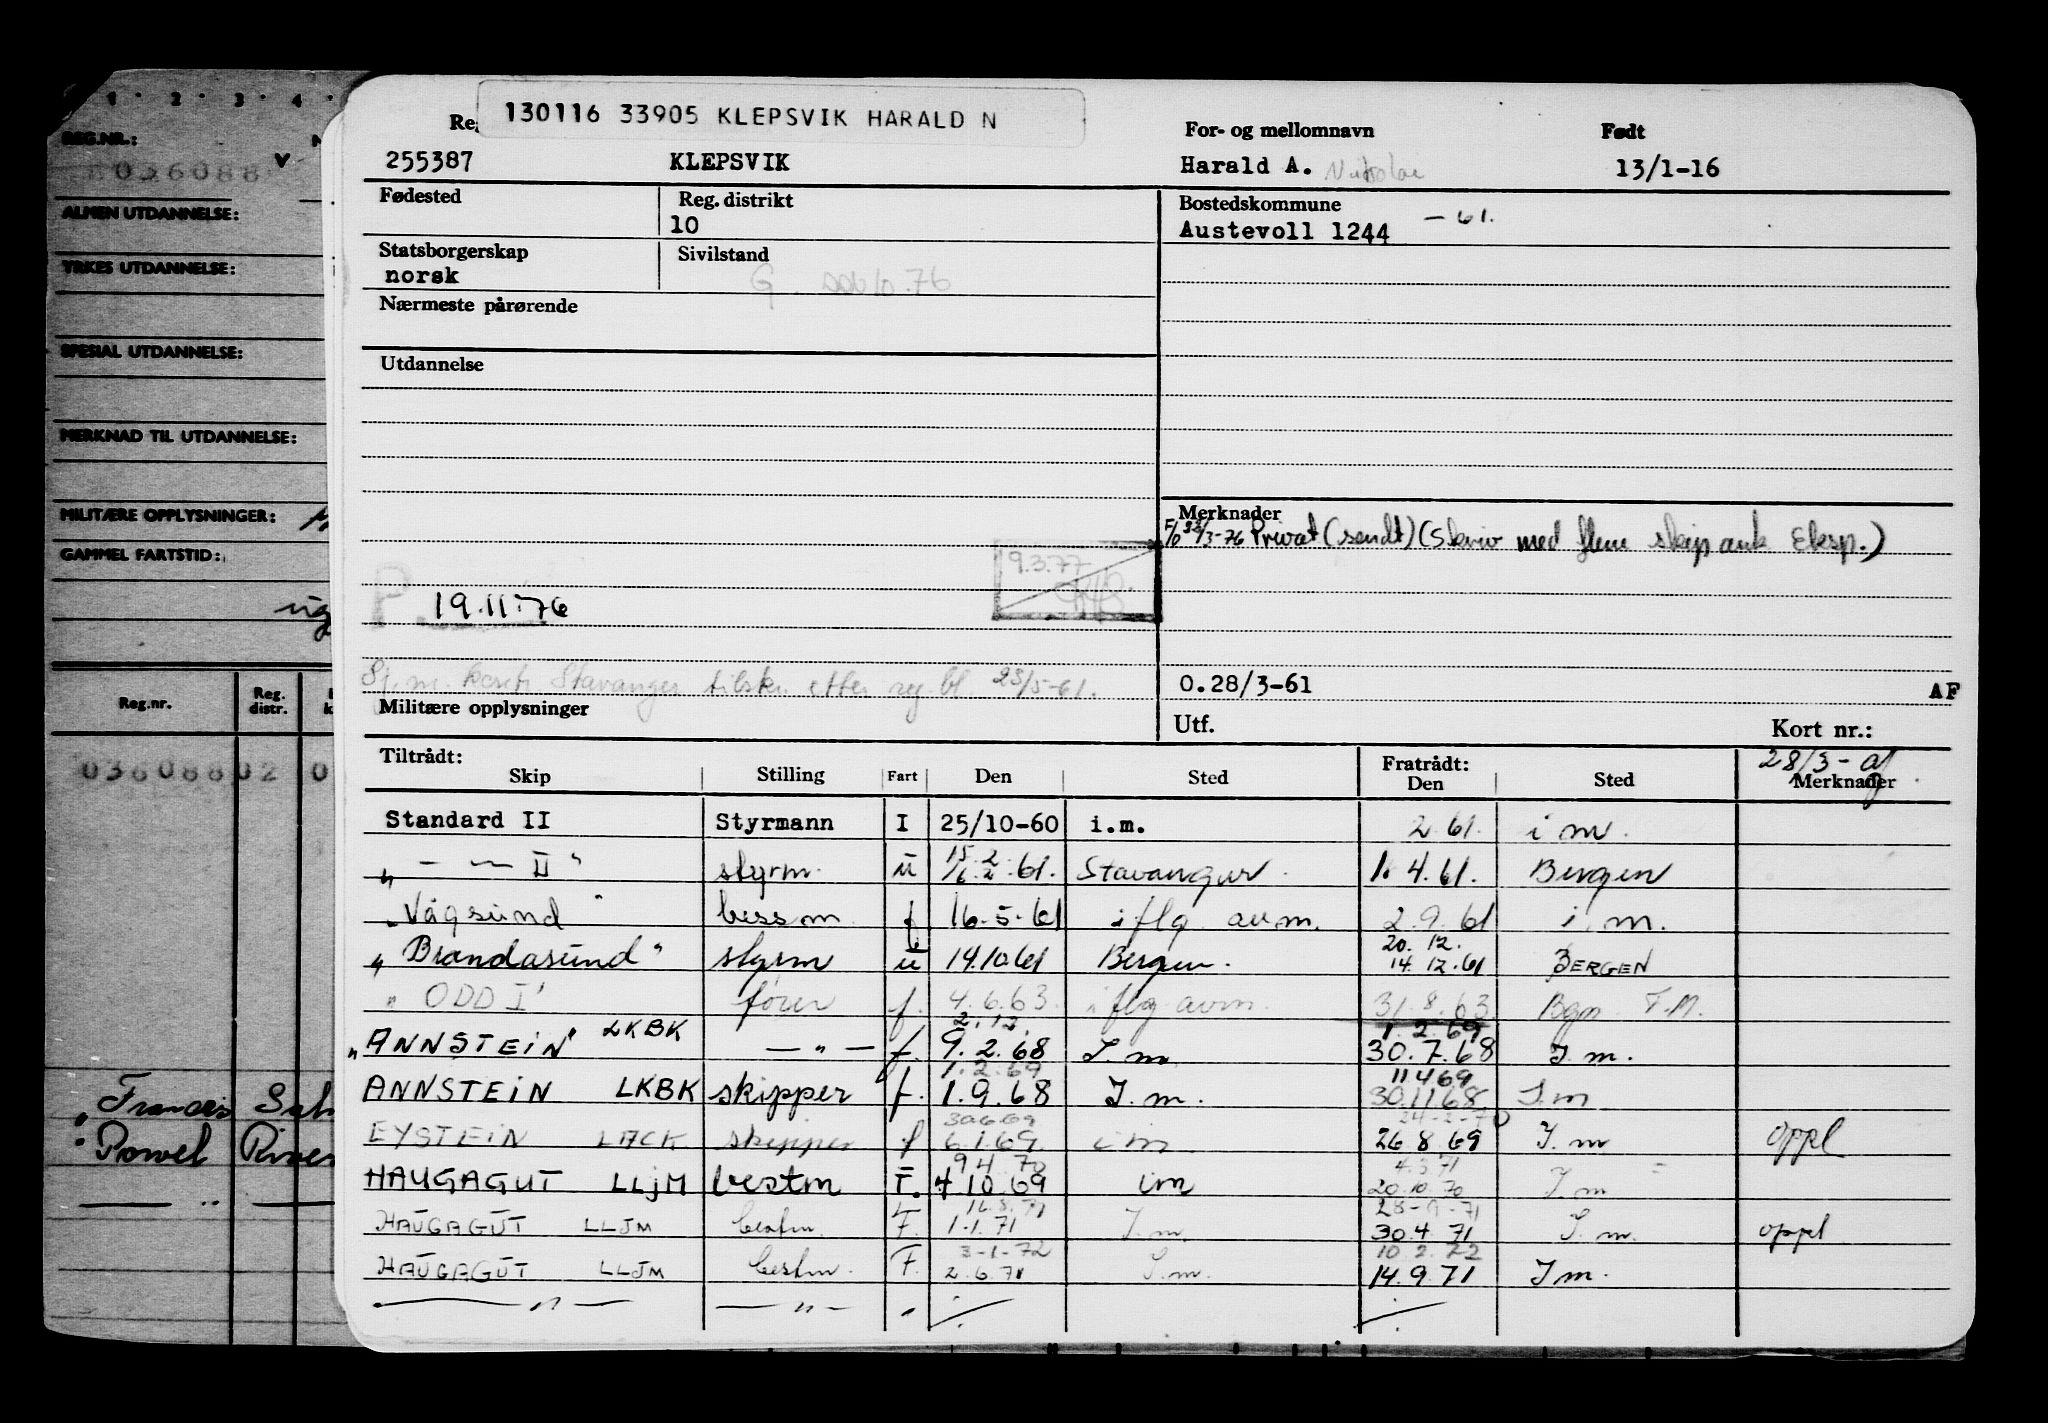 1 · 2 · 3 · 4 ·
REG.NR.:
036088 V
ALMEN UTDANNELSE:
YRKES UTDANNELSE:
SPESIAL UTDANNELSE:
MERKNAD TIL UTDANNELSE:
MILITÆRE OPPLYSNINGER:
GAMMEL FARTSTID:
Reg.nr. Reg. distr.
03608802 0
130116 33905 KLEPSVIK HARALD N
For- og mellomnavn Født
255387 KLEPSVIK Harald A. Nikolai 13/1-16
Fødested Reg. distrikt Bostedskommune
10 Austevoll 1244 - 61.
Statsborgerskap Sivilstand
norsk G. 76
Nærmeste pårørende
Utdannelse
Merknader
Privat (sendt) (Skriv med flere skip ank Eksp.)
9.3.77
P. 19.11.76
Stavanger tilskr. etter reg.bl 23/5-61.
O.28/3-61 AF
Militære opplysninger Utf. Kort nr.:
28/3-
Tiltrådt: Fratrådt:
Skip Stilling Fart Den Sted Den Sted Merknader
Standard II Styrmann I 25/10-60 i.m. 2.61. i m.
„ — — II " styrm. u 15.2 16.2.61. Stavanger 1.4.61. Bergen
„Vågsund" bessm. f 16.5.61 iflg av.m. 2.9.61 i.m.
„Brandasund" styrm u 14.10.61 Bergen. 20.12. 14.12.61 BERGEN
"ODD I" fører f. 4.6.63. iflg avm. 31.8.63 Bgn F.M.
„ANNSTEIN" LKBK — " — f. 2.12. 9.2.68 I.m 1.2.69 30.7.68 I.m.
ANNSTEIN LKBK skipper f. 1.2.69 1.9.68 I.m. 11469 30.11.68 I.m
EYSTEIN skipper f 30.6.69 6.1.69. i m 26.8.69 I.m oppl
HAUGAGUT LLJM bestm F. 9.4.70 4.10.69 im 4.3.71 20.10.70 I.m
HAUGAGUT LLJM bestm. F. 1.1.71 I.m. 30.4.71 I.m. oppl
HAUGAGUT LLJM bestm. F. 3-1-72 2.6.71 I.m. 10.2.72 14.9.71 I.m.
— " — — " —